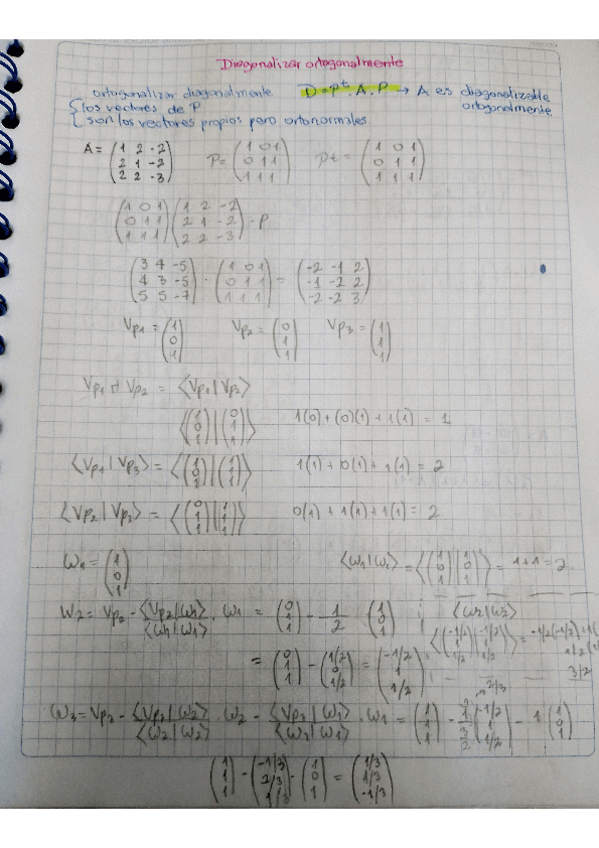 Diagonalizar ortogonalmente
ortogonalizar diagonalmente D = Pᵗ . A . P → A es diagonalizable ortogonalmente
{ los vectores de P
son los vectores propios pero ortonormales
A = (1 2 -2; 2 1 -2; 2 2 -3) P = (1 0 1; 0 1 1; 1 1 1) Pt = (1 0 1; 0 1 1; 1 1 1)
(1 0 1; 0 1 1; 1 1 1) (1 2 -2; 2 1 -2; 2 2 -3) · P
(3 4 -5; 4 3 -5; 5 5 -7) · (1 0 1; 0 1 1; 1 1 1) = (-2 -1 2; -1 -2 2; -2 -2 3)
Vp1 = (1; 0; 1) Vp2 = (0; 1; 1) Vp3 = (1; 1; 1)
Vp2 = ⟨Vp1 | Vp2⟩
⟨(1; 0; 1) | (0; 1; 1)⟩ 1(0) + (0)(1) + 1(1) = 1
⟨Vp1 | Vp3⟩ = ⟨(1; 0; 1) | (1; 1; 1)⟩ 1(1) + 0(1) + 1(1) = 2
⟨Vp2 | Vp3⟩ = ⟨(0; 1; 1) | (1; 1; 1)⟩ 0(1) + 1(1) + 1(1) = 2
W1 = (1; 0; 1) ⟨W1 | W1⟩ = ⟨(1; 0; 1) | (1; 0; 1)⟩ = 1 + 1 = 2.
W2 = Vp2 - ⟨Vp2 | W1⟩/⟨W1 | W1⟩ . W1 = (0; 1; 1) - 1/2 (1; 0; 1) ; ⟨W2 | W2⟩
⟨(-1/2; 1; 1/2) | (-1/2; 1; 1/2)⟩ = -1/2(-1/2) +
3/2
= (0; 1; 1) - (1/2; 0; 1/2) = (-1/2; 1; 1/2)
2/3
W3 = Vp3 - ⟨Vp3 | W2⟩/⟨W2 | W2⟩ . W2 - ⟨Vp3 | W1⟩/⟨W1 | W1⟩ . W1 = (1; 1; 1) - (-1/2; 1; 1/2) - 1 (1; 0; 1)
(1; 1; 1) - (-1/3; 2/3; 1/3) - (1; 0; 1) = (1/3; 1/3; -1/3)